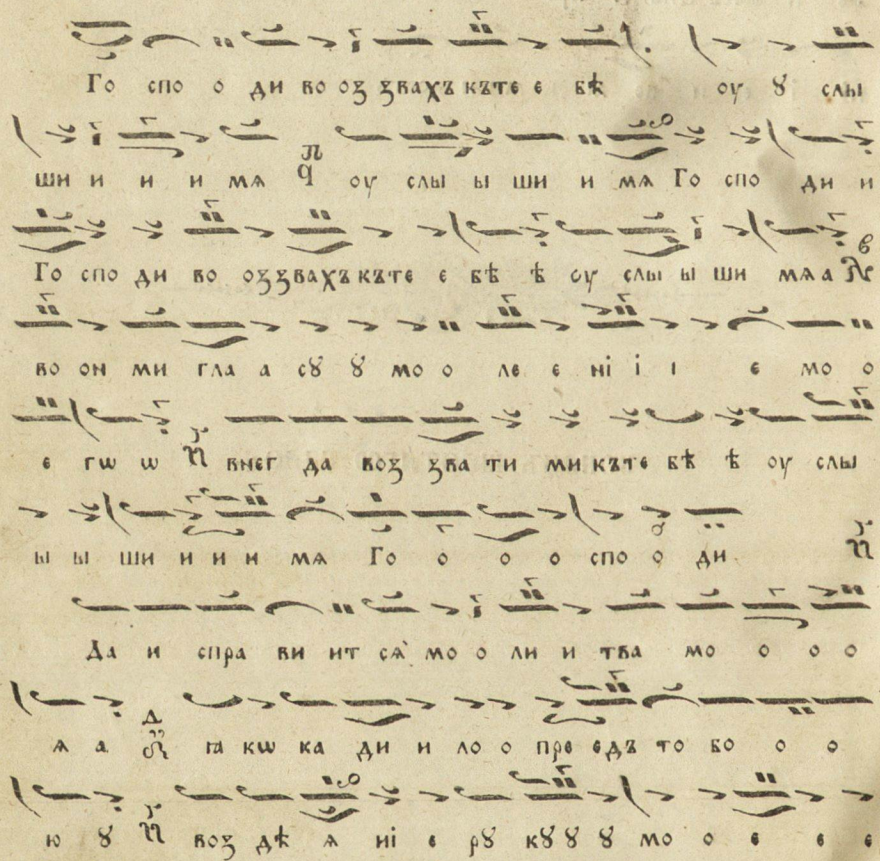 Го спо о ди во оз звахъ къте е бѣ оу ꙋ слы
ши и и и мѧ оу слы ы ши и мѧ Го спо ди и
Го спо ди во оззвахъ къте е бѣ ѣ оу слы ы ши мѧ а
во он ми гла а сꙋ ꙋ мо о ле е ні і і е мо о
е гѡ ѡ внег да воз зва ти ми къте бѣ ѣ оу слы
ы ы ши и и и мѧ Го о о о спо о ди
Да и спра ви ит сѧ̀ мо о ли и тва мо о о о
ѧ а ꙗ кѡ ка ди и ло о пре едъ то бо о о
ю ꙋ воз дѣ ѧ ні е рꙋ кꙋ ꙋ ꙋ мо о е е е